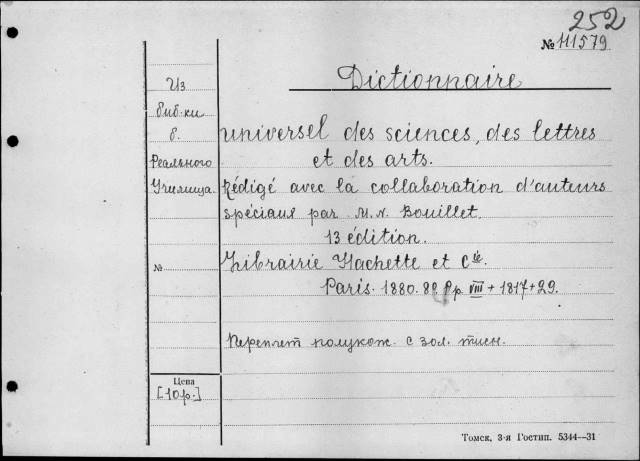 252
№ 111579
Dictionnaire
Из
биб-ки
б.
Реального
Училища.
universel des sciences, des lettres
et des arts.
Rédigé avec la collaboration d'auteurs
spéciaux par M.N. Bouillet.
13 édition.
№
Librairie Hachette et Cie.
Paris. 1880. 8º pp. VIII + 1817+29.
Переплет полукож. с зол. тисн.
Цена
[10р.]
Томск, 3-я Гостип. 5344—31